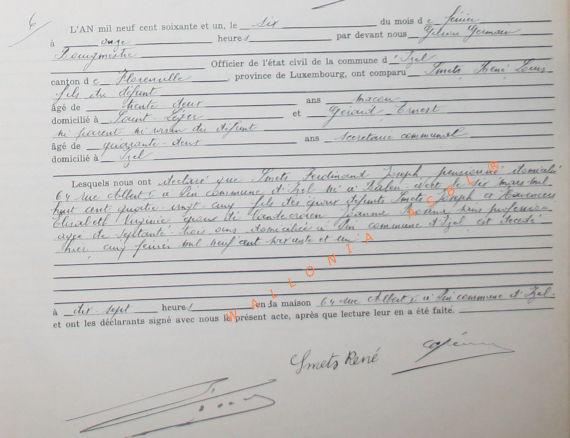 6
L'AN mil neuf cent soixante et un, le six du mois de février
à onze heures par devant nous Gilson Germain
Bourgmestre Officier de l'état civil de la commune d'Izel
canton de Florenville, province de Luxembourg, ont comparu Smets, René, Louis
fils du défunt
âgé de trente deux ans maçon
domicilié à Saint-Léger et Gérard Ernest
ni parent ni voisin du défunt
âgé de quarante-deux ans secrétaire communal
domicilié à Izel
Lesquels nous ont déclaré que Smets Ferdinand Joseph, pensionné domicilié
64 rue Albert I à Pin commune d'Izel né à le dix mars mil
huit cent quatre vingt cinq fils des époux défunts Smets Joseph et
Elisabeth Virginie époux de Jeanne sans profession
âgée de septante-trois ans domiciliée à Pin commune d'Izel, est décédé
hier, cinq février mil neuf cent soixante et un
à dix-sept heures en sa maison 64 rue Albert I à Pin commune d'Izel
et ont les déclarants signé avec nous le présent acte, après que lecture leur en a été faite.
Smets René
WALLONIA ASBL